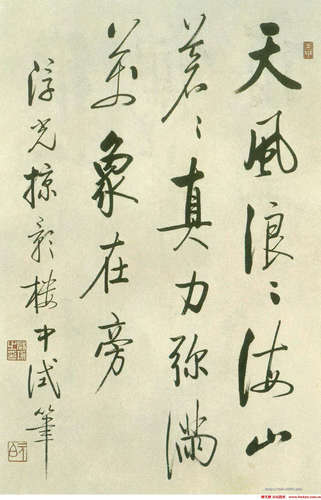 天風浪浪海山
蒼蒼真力弥満
萬象在旁
浮光掠影樓中試筆